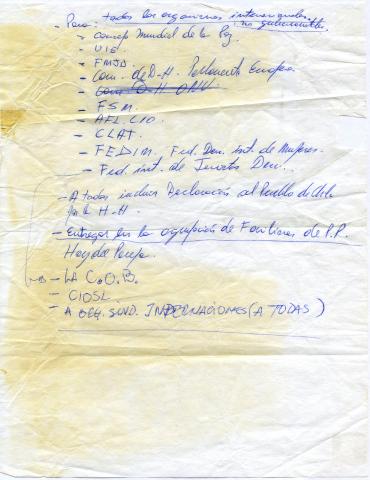 - Para: todos los organismos internacionales
no gubernamentales.
- Consejo Mundial de la Paz
- UIE.
- FMJD.
- Com. de D-H. Parlamento Europeo
- Com. D-H ONU
- FSM.
- AFL CIO.
- CLAT.
- FEDIM. Fed. Dem. int. de Mujeres.
- Fed. int. de Juristas Dem.
- A todos incluir Declaración al Pueblo de Chile
H-H.
- Entregar en la agrupación de Familiares de P.P.
- LA C.O.B.
- CIOSL.
- A OEG. SIND. INTERNACIONES (A TODAS)